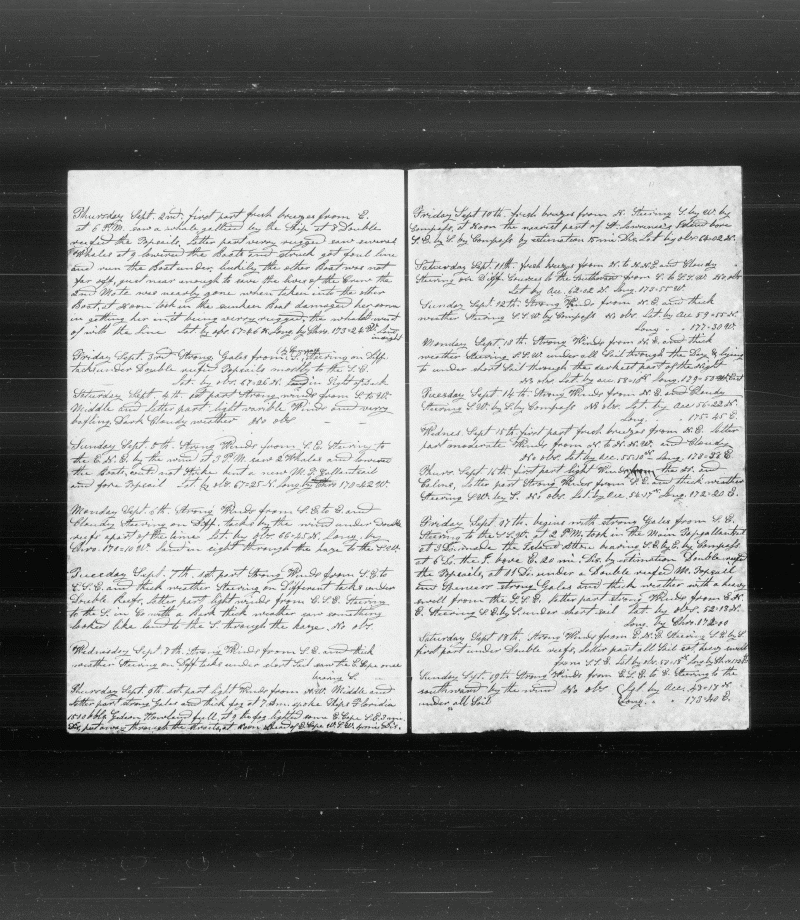 Thursday Sept. 2nd. first part fresh breezes from E.
at 6 P.M. saw a whale gethered by the Ship at 8 Double
reefed the Topsails, Letter part verry rugged saw several
Whales at 9 lowered the Boats and struck got foul line
and run the Boat under luckily the other Boat was not
far off, just near enough to save the lives of the Crew the
2nd Mate was nearly gone when taken into the other
Boat, at Noon took in the sunken Boat damaged her some
in getting her in it being verry rugged, the whale went
of with the line Lat by obs 67-46 N. Long by Chro. 173-24 W. Land
in sight
Friday Sept. 3rd Strong Gales from, steering on Diff.
tacks under Double reefed Topsails mostly to the S.E.
Lat. by obs. 67-26 N. Land in Sight of Back
Saturday Sept. 4th 1st part Strong winds from S. to
Middle and letter part light variable Winds and verry
bafling, Dark Cloudy weather No obs
Sunday Sept. 5th Strong Winds from S.E. Steering to
the E.N.E. by the wind at 3 P.M. saw 2 Whales and lowered
the Boats, could not strike bent a new M.T. Gallantsail
and fore Topsail Lat by obs 67-25 N. Long by Chro 170-22 W.
Monday Sept. 6th Strong Winds from S.E. to E. and
Cloudy Steering on Diff. tacks by the wind under Double
reefs apart of the time. Lat by obs. 66-45 N. Long. by
Chro. 170-10 W. Land in sight through the haze to the S.W.
Tuesday Sept. 7th. 1st part Strong Winds from S.E. to
E.S.E. and thick weather Steering on Different tacks under
Double Reefs, letter part light winds from E.S.E. Steering
to the S. in 6 moth a back thick weather saw something
looked like land to the S. through the haze. No obs.
Wednesday Sept. 8th Strong Winds from S.E. and thick
weather Steering on Diff tacks under short Sail saw the E. Cape once
bearing S.
Thursday Sept. 9th 1st part light Winds from N.W. Middle and
letter part strong Gales and thick fog at 7 A.m. spoke Ships Florida
1500 bbls Gideon Howland full, at 9 the fog lighted saw E. Cape S.E. 3
Dis, past away through the straits, at Noon
Friday Sept 10th. fresh breezes from N. Steering S. by W. by
Compass, at Noon the nearest part of St. Lawrence's Island bore
S.E. by S. by Compass by estimation 15 mi Dis, Lat by obs. 64-02 N.
Saturday Sept. 11th. fresh breezes from N. to N.N.E. and Cloudy
Steering on Diff. Courses to the Southward from S. to S.S.W. No obs
Lat by Acc. 62-02 N. Long. 173-55 W.
Sunday Sept. 12th. Strong Winds from N.E. and thick
weather Steering S.S.W. by Compass No obs. Lat. by Acc 59-55 N.
Long - - 177-30 W.
Monday Sept. 13th Strong Winds from N.E. and thick
weather Steering S.S.W. under all Sail through the Day & lying
to under short Sail through the darkest part of the Night
No obs Lat by acc 58-10 N. Long. 179-53 W. East
Tuesday Sept. 14th Strong Winds from N.E. and Cloudy
Steering S.W. by S. by Compass No obs. Lat. by Acc 56-22 N.
Long. 175-45 E.
Wednes. Sept 15th. first part fresh breezes from N.E. letter
part moderate Winds from N. to N.N.W. and Cloudy
No obs. Lat by Acc. 55-10 N. Long. 173-38 E.
Thurs. Sept 16th first part light Winds from the N. and
Calms, letter part Strong Winds from S.E. and thick weather
Steering S.W. by S. No obs. Lat by Acc. 54-17 N. Long. 172-20 E.
Friday Sept. 17th. begins with strong Gales from S.E.
Steering to the S.S.W. at 2 P.M. took in the Main Topgallantsail
at 3 Do. made the Island Atten baring S.E. by E. by Compass
at 6 Do. the I. bore E. 20 mi. Dis. by estimation Double reefed
the Topsails, at 11 Do. under a Double reefed M. Topsail
and Spencer strong Gales and thick weather with a heavy
swell from the S.S.E. letter part strong Winds from E.N.
E. Steering S.E. by S. under short sail Lat. by obs. 52-13 N.
Long. by Chro. 172-00
Saturday Sept 18th. Strong Winds from E.N.E. Steering S.E. by S.
first part under Double reefs, letter part all Sail set heavy swell
from S.S.E. Lat by obs. 50-18 N. Long by Chro
Sunday Sept. 19th. Strong Winds from E.S.E. to E. Steering to the
southward by the wind No obs Lat by Acc. 47-17 N.
under all Sail Long. - - 173-40 E.